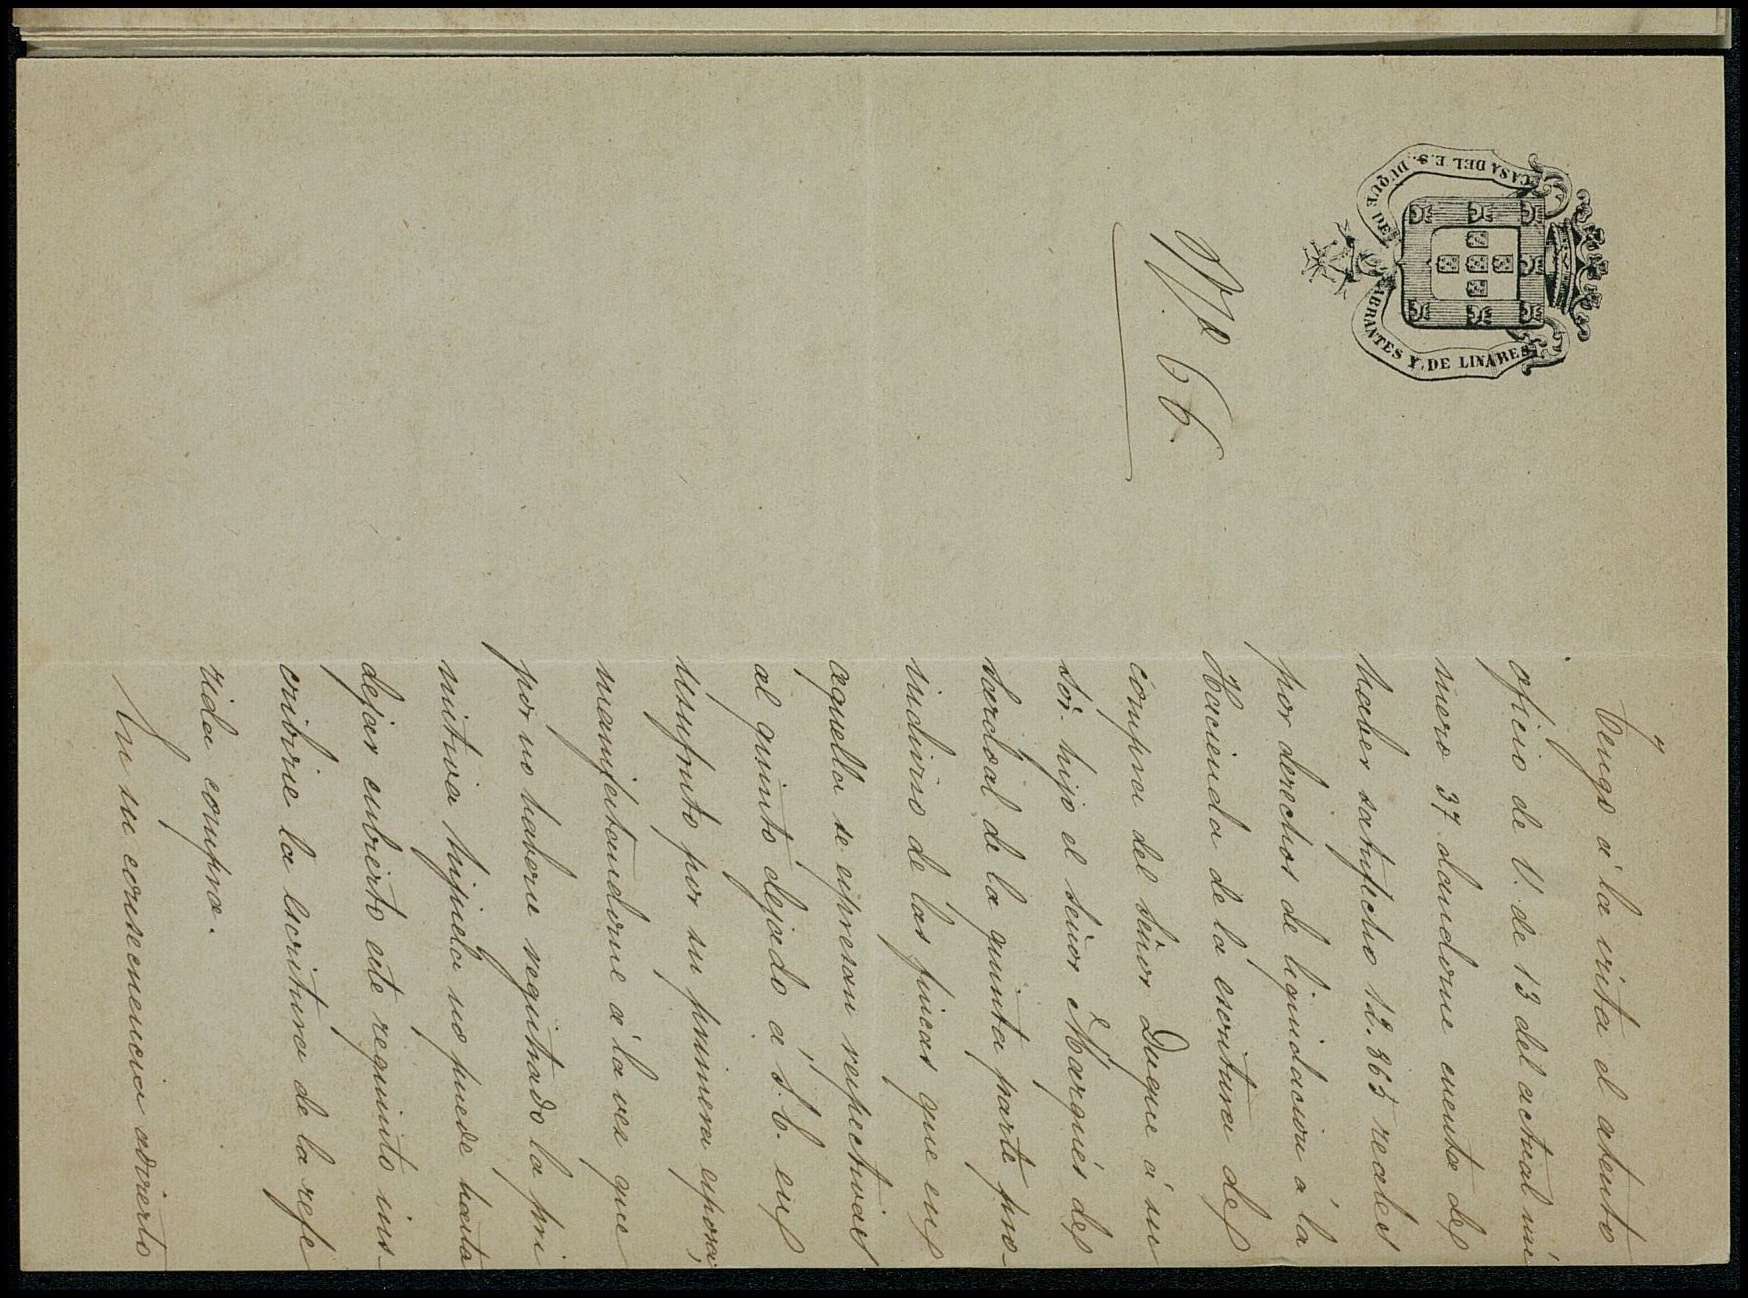 CASA DEL E.S. DUQUE DE ABRANTES Y DE LINARES
Nº 66.
Tengo á la vista el atento
oficio de V. de 13 del actual nú
mero 37 dandome cuenta de
haber satisfecho 12.865 reales
por derechos de liquidacion á la
Hacienda de la escritura de
compra del señor Duque á su
sór. hijo el señor Marqués de
Sardoal de la quinta parte pro-
indiviso de las fincas que en
aquella se espresan respectivas
al quinto dejado á S.E. en
usufruto por su primera esposa,
manifestandome á la vez que
por no haberse registrado la pri
mitiva hijuela no puede hasta
dejar cubierto este requisito ins-
cribirse la escritura de la refe
rida compra.
En su consecuencia advierto